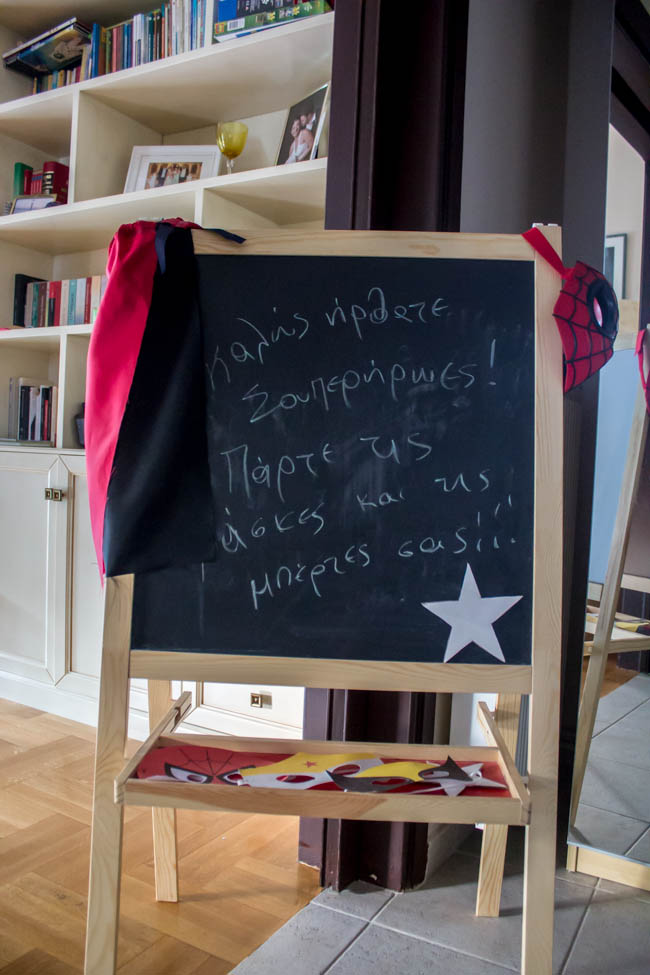 Καλώς ήρθατε
Σουπερήρωες!
Πάρτε τις
άσκες και τις
μπέρτες σας!!!